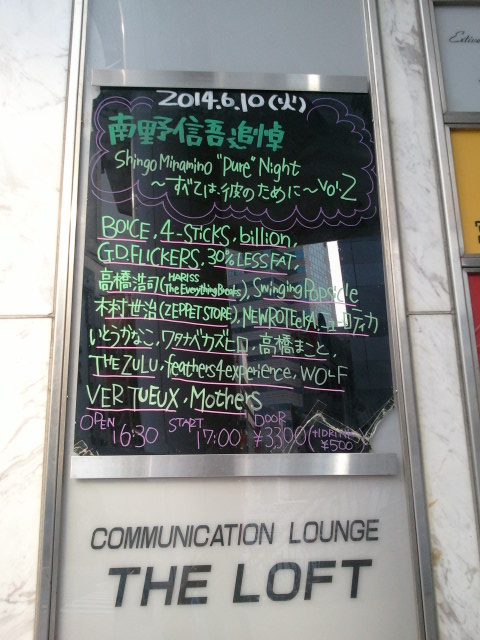 2014.6.10(火)
南野信吾追悼
Shingo Minamino "Pure" Night
～すべては、彼のために～vol.2
BOICE, 4-STiCKS, billion,
G.D.FLICKERS, 30%LESS FAT,
高橋浩司(HARISS The Everything Breaks), Swinging Popsicle
木村世治(ZEPPET STORE), NEWROTEKA ニューロティカ
いとうかなこ, ワタナベカズヒロ, 高橋まこと,
THE ZULU, feathers4experience, WOLF
VERTUEUX, Mothers
OPEN 16:30 START 17:00 DOOR ¥3300 (+1DRINK ¥500)
COMMUNICATION LOUNGE
THE LOFT